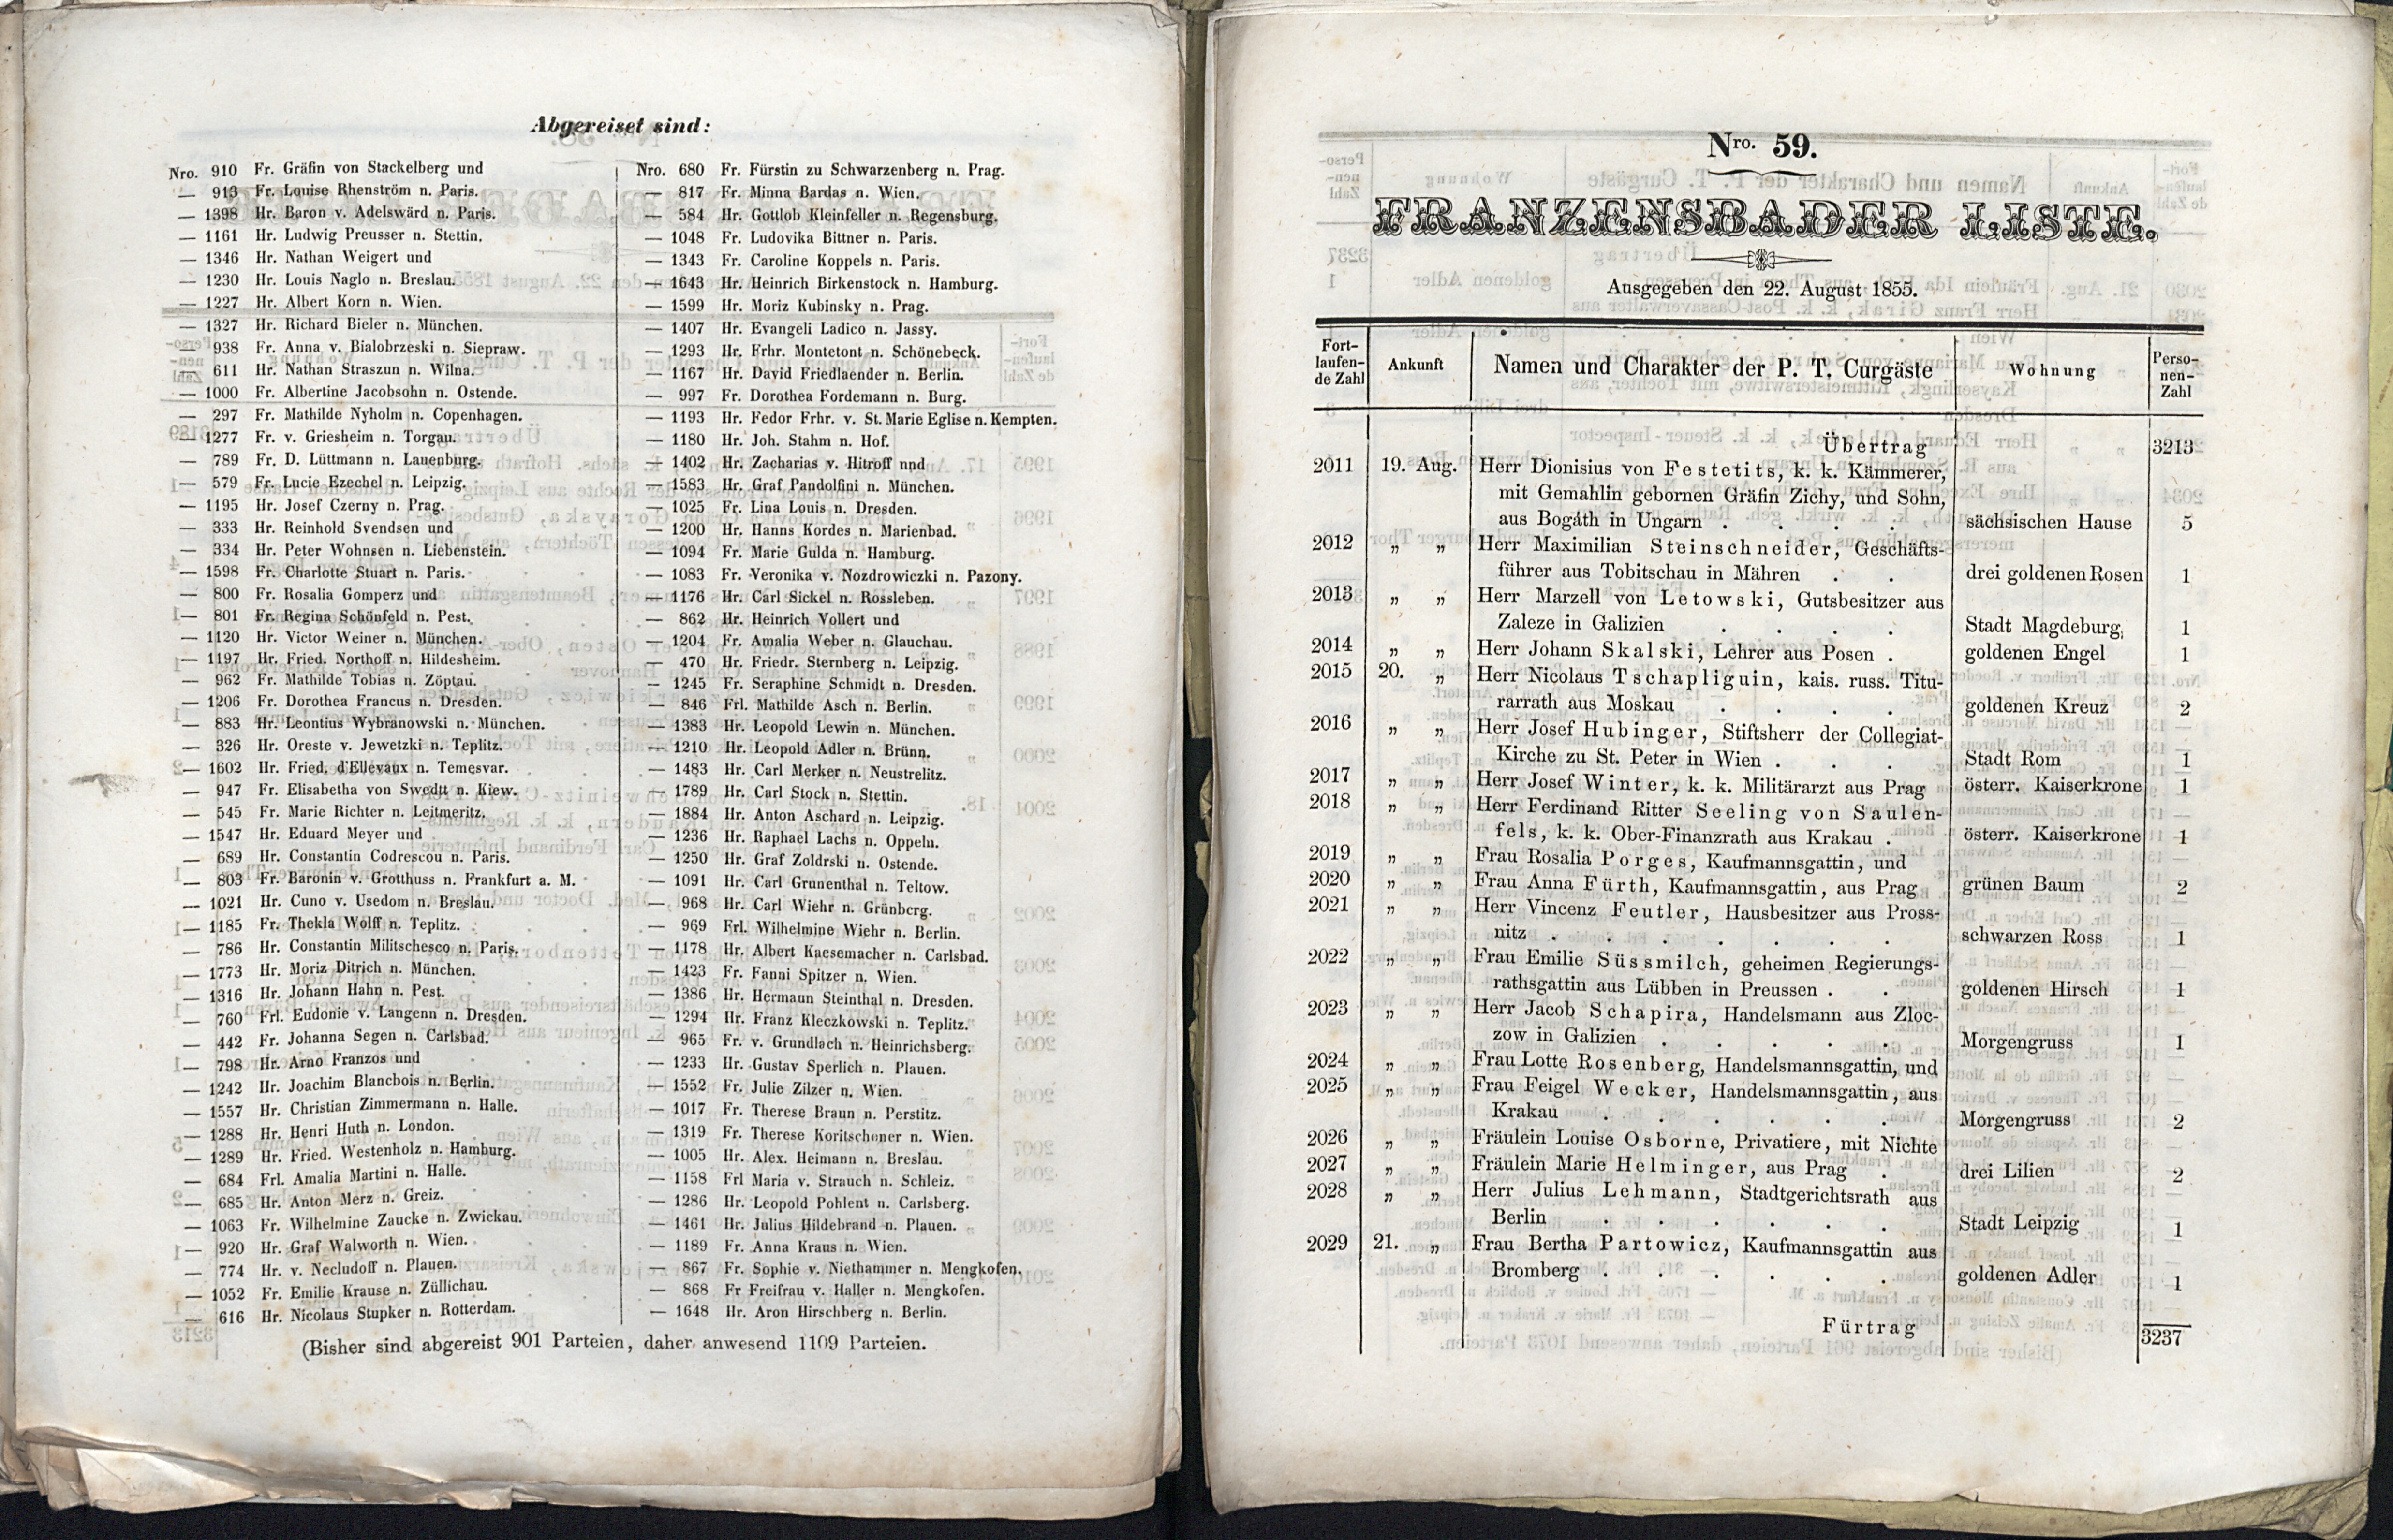 Abgereiset sind:
Nro. 910 Fr. Gräfin von Stackelberg und
— 913 Fr. Louise Rhenström n. Paris.
— 1398 Hr. Baron v. Adelswärd n. Paris.
— 1161 Hr. Ludwig Preusser n. Stettin.
— 1346 Hr. Nathan Weigert und
— 1230 Hr. Louis Naglo n. Breslau.
— 1227 Hr. Albert Korn n. Wien.
— 1327 Hr. Richard Bieler n. München.
— 938 Fr. Anna v. Bialobrzeski n. Siepraw.
— 611 Hr. Nathan Straszun n. Wilna.
— 1000 Fr. Albertine Jacobsohn n. Ostende.
— 297 Fr. Mathilde Nyholm n. Copenhagen.
— 1277 Fr. v. Griesheim n. Torgau.
— 789 Fr. D. Lüttmann n. Lauenburg.
— 579 Fr. Lucie Ezechel n. Leipzig.
— 1195 Hr. Josef Czerny n. Prag.
— 333 Hr. Reinhold Svendsen und
— 334 Hr. Peter Wohnsen n. Liebenstein.
— 1598 Fr. Charlotte Stuart n. Paris.
— 800 Fr. Rosalia Gomperz und
— 801 Fr. Regina Schönfeld n. Pest.
— 1120 Hr. Victor Weiner n. München.
— 1197 Hr. Fried. Northoff n. Hildesheim.
— 962 Fr. Mathilde Tobias n. Zöptau.
— 1206 Fr. Dorothea Francus n. Dresden.
— 883 Hr. Leontius Wybranowski n. München.
— 326 Hr. Oreste v. Jewetzki n. Teplitz.
— 1602 Hr. Fried. d'Ellevaux n. Temesvar.
— 947 Fr. Elisabetha von Swedtt n. Kiew.
— 545 Fr. Marie Richter n. Leitmeritz.
— 1547 Hr. Eduard Meyer und
— 689 Hr. Constantin Codrescou n. Paris.
— 803 Fr. Baronin v. Grotthuss n. Frankfurt a. M.
— 1021 Hr. Cuno v. Usedom n. Breslau.
— 1185 Fr. Thekla Wolff n. Teplitz.
— 786 Hr. Constantin Militschesco n. Paris.
— 1773 Hr. Moriz Ditrich n. München.
— 1316 Hr. Johann Hahn n. Pest.
— 760 Frl. Eudonie v. Langenn n. Dresden.
— 442 Fr. Johanna Segen n. Carlsbad.
— 798 Hr. Arno Franzos und
— 1242 Hr. Joachim Blancbois n. Berlin.
— 1557 Hr. Christian Zimmermann n. Halle.
— 1288 Hr. Henri Huth n. London.
— 1289 Hr. Fried. Westenholz n. Hamburg.
— 684 Frl. Amalia Martini n. Halle.
— 685 Hr. Anton Merz n. Greiz.
— 1063 Fr. Wilhelmine Zaucke n. Zwickau.
— 920 Hr. Graf Walworth n. Wien.
— 774 Hr. v. Necludoff n. Plauen.
— 1052 Fr. Emilie Krause n. Züllichau.
— 616 Hr. Nicolaus Stupker n. Rotterdam.
Nro. 680 Fr. Fürstin zu Schwarzenberg n. Prag.
— 817 Fr. Minna Bardas n. Wien.
— 584 Hr. Gottlob Kleinfeller n. Regensburg.
— 1048 Fr. Ludovika Bittner n. Paris.
— 1343 Fr. Caroline Koppels n. Paris.
— 1643 Hr. Heinrich Birkenstock n. Hamburg.
— 1599 Hr. Moriz Kubinsky n. Prag.
— 1407 Hr. Evangeli Ladico n. Jassy.
— 1293 Hr. Frhr. Montetont n. Schönebeck.
— 1167 Hr. David Friedlaender n. Berlin.
— 997 Fr. Dorothea Fordemann n. Burg.
— 1193 Hr. Fedor Frhr. v. St. Marie Eglise n. Kempten.
— 1180 Hr. Joh. Stahm n. Hof.
— 1402 Hr. Zacharias v. Hitroff und
— 1583 Hr. Graf Pandolfini n. München.
— 1025 Fr. Lina Louis n. Dresden.
— 1200 Hr. Hanns Kordes n. Marienbad.
— 1094 Fr. Marie Gulda n. Hamburg.
— 1083 Fr. Veronika v. Nozdrowiczki n. Pazony.
— 1176 Hr. Carl Sickel n. Rossleben.
— 862 Hr. Heinrich Vollert und
— 1204 Fr. Amalia Weber n. Glauchau.
— 470 Hr. Friedr. Sternberg n. Leipzig.
— 1245 Fr. Seraphine Schmidt n. Dresden.
— 846 Frl. Mathilde Asch n. Berlin.
— 1383 Hr. Leopold Lewin n. München.
— 1210 Hr. Leopold Adler n. Brünn.
— 1483 Hr. Carl Merker n. Neustrelitz.
— 1789 Hr. Carl Stock n. Stettin.
— 1884 Hr. Anton Aschard n. Leipzig.
— 1236 Hr. Raphael Lachs n. Oppeln.
— 1250 Hr. Graf Zoldrski n. Ostende.
— 1091 Hr. Carl Grunenthal n. Teltow.
— 968 Hr. Carl Wiehr n. Grünberg.
— 969 Frl. Wilhelmine Wiehr n. Berlin.
— 1178 Hr. Albert Kaesemacher n. Carlsbad.
— 1423 Fr. Fanni Spitzer n. Wien.
— 1386 Hr. Hermann Steinthal n. Dresden.
— 1294 Hr. Franz Kleczkowski n. Teplitz.
— 965 Fr. v. Grundlach n. Heinrichsberg.
— 1233 Hr. Gustav Sperlich n. Plauen.
— 1552 Fr. Julie Zilzer n. Wien.
— 1017 Fr. Therese Braun n. Perstitz.
— 1319 Fr. Therese Koritschoner n. Wien.
— 1005 Hr. Alex. Heimann n. Breslau.
— 1158 Frl Maria v. Strauch n. Schleiz.
— 1286 Hr. Leopold Pohlent n. Carlsberg.
— 1461 Hr. Julius Hildebrand n. Plauen.
— 1189 Fr. Anna Kraus n. Wien.
— 867 Fr. Sophie v. Niethammer n. Mengkofen.
— 868 Fr Freifrau v. Haller n. Mengkofen.
— 1648 Hr. Aron Hirschberg n. Berlin.
(Bisher sind abgereist 901 Parteien, daher anwesend 1109 Parteien.
Nro. 59.
FRANZENSBADER LISTE.
Ausgegeben den 22. August 1855.
Fort-laufen-de Zahl Ankunft Namen und Charakter der P. T. Curgäste Wohnung Perso-nen-Zahl
Übertrag 3213
2011 19. Aug. Herr Dionisius von Festetits, k. k. Kämmerer,
mit Gemahlin gebornen Gräfin Zichy, und Sohn,
aus Bogáth in Ungarn . . . . sächsischen Hause 5
2012 „ „ Herr Maximilian Steinschneider, Geschäfts-
führer aus Tobitschau in Mähren . . drei goldenen Rosen 1
2013 „ „ Herr Marzell von Letowski, Gutsbesitzer aus
Zaleze in Galizien . . . . Stadt Magdeburg 1
2014 „ „ Herr Johann Skalski, Lehrer aus Posen . goldenen Engel 1
2015 20. „ Herr Nicolaus Tschapliguin, kais. russ. Titu-
rarrath aus Moskau . . . . goldenen Kreuz 2
2016 „ „ Herr Josef Hubinger, Stiftsherr der Collegiat-
Kirche zu St. Peter in Wien . . . Stadt Rom 1
2017 „ „ Herr Josef Winter, k. k. Militärarzt aus Prag österr. Kaiserkrone 1
2018 „ „ Herr Ferdinand Ritter Seeling von Saulen-
fels, k. k. Ober-Finanzrath aus Krakau . österr. Kaiserkrone 1
2019 „ „ Frau Rosalia Porges, Kaufmannsgattin, und
2020 „ „ Frau Anna Fürth, Kaufmannsgattin, aus Prag grünen Baum 2
2021 „ „ Herr Vincenz Feutler, Hausbesitzer aus Pross-
nitz . . . . . . . schwarzen Ross 1
2022 „ „ Frau Emilie Süssmilch, geheimen Regierungs-
rathsgattin aus Lübben in Preussen . . goldenen Hirsch 1
2023 „ „ Herr Jacob Schapira, Handelsmann aus Zloc-
zow in Galizien . . . . . Morgengruss 1
2024 „ „ Frau Lotte Rosenberg, Handelsmannsgattin, und
2025 „ „ Frau Feigel Wecker, Handelsmannsgattin, aus
Krakau . . . . . . Morgengruss 2
2026 „ „ Fräulein Louise Osborne, Privatiere, mit Nichte
2027 „ „ Fräulein Marie Helminger, aus Prag . drei Lilien 2
2028 „ „ Herr Julius Lehmann, Stadtgerichtsrath aus
Berlin . . . . . . Stadt Leipzig 1
2029 21. „ Frau Bertha Partowicz, Kaufmannsgattin aus
Bromberg . . . . . . goldenen Adler 1
Fürtrag 3237